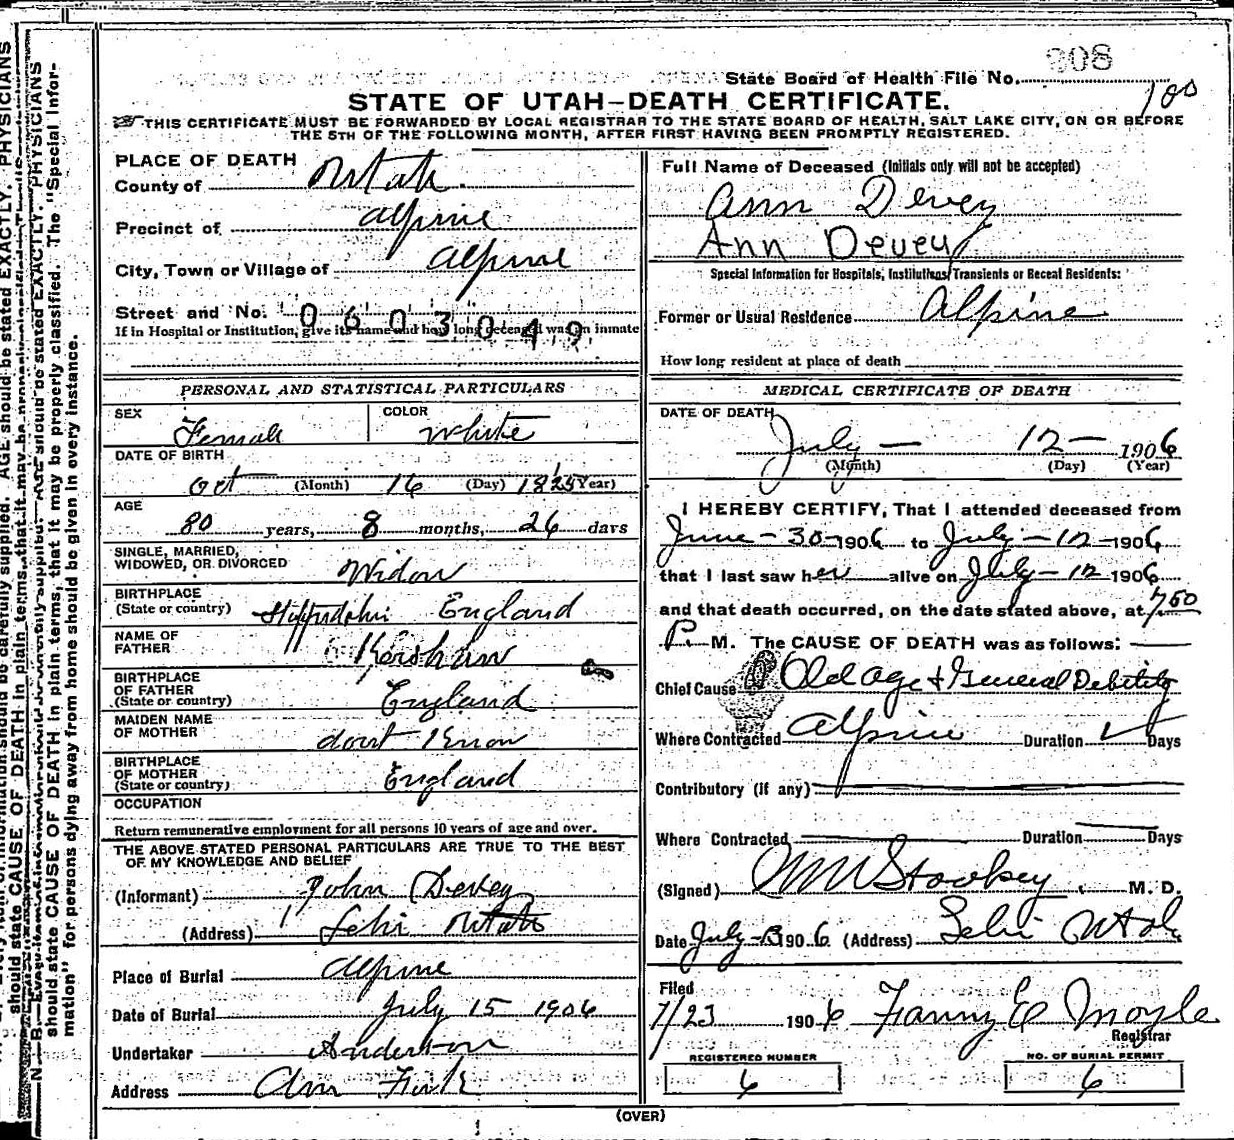 808
State Board of Health File No.
180
STATE OF UTAH—DEATH CERTIFICATE.
THIS CERTIFICATE MUST BE FORWARDED BY LOCAL REGISTRAR TO THE STATE BOARD OF HEALTH, SALT LAKE CITY, ON OR BEFORE
THE 5TH OF THE FOLLOWING MONTH, AFTER FIRST HAVING BEEN PROMPTLY REGISTERED.
PLACE OF DEATH
County of Utah.
Precinct of Alpine
City, Town or Village of Alpine
Street and No. 0603049
If in Hospital or Institution, give its name and how long deceased was an inmate
PERSONAL AND STATISTICAL PARTICULARS
SEX Female COLOR White
DATE OF BIRTH
Oct (Month) 16 (Day) 1825 (Year)
AGE
80 years, 8 months, 26 days
SINGLE, MARRIED,
WIDOWED, OR DIVORCED Widow
BIRTHPLACE
(State or country) England
NAME OF
FATHER Kershaw
BIRTHPLACE
OF FATHER
(State or country) England
MAIDEN NAME
OF MOTHER dont Know
BIRTHPLACE
OF MOTHER
(State or country) England
OCCUPATION
Return remunerative employment for all persons 10 years of age and over.
THE ABOVE STATED PERSONAL PARTICULARS ARE TRUE TO THE BEST
OF MY KNOWLEDGE AND BELIEF
(Informant) John Devey
(Address) Lehi Utah
Place of Burial Alpine
Date of Burial July 15 1906
Undertaker Anderson
Address Am Fork
Full Name of Deceased (Initials only will not be accepted)
Ann Devey
Ann Devey
Special Information for Hospitals, Institutions, Transients or Recent Residents:
Former or Usual Residence Alpine
How long resident at place of death
MEDICAL CERTIFICATE OF DEATH
DATE OF DEATH
July — 12 — 1906
(Month) (Day) (Year)
I HEREBY CERTIFY, That I attended deceased from
June - 30 - 1906 to July - 12 - 1906
that I last saw her alive on July - 12 1906
and that death occurred, on the date stated above, at 7.50
P. M. The CAUSE OF DEATH was as follows:
Chief Cause Old age + General Debility
Where Contracted Alpine Duration Days
Contributory (if any)
Where Contracted Duration Days
(Signed) Stookey M. D.
Date July-13 1906 (Address) Lehi Utah
Filed
7/23 1906 Fanny E Moyle
Registrar
REGISTERED NUMBER
6
NO. OF BURIAL PERMIT
6
(OVER)
should state CAUSE OF DEATH in plain terms, that it may be properly classified. The "Special Infor-
mation" for persons dying away from home should be given in every instance.